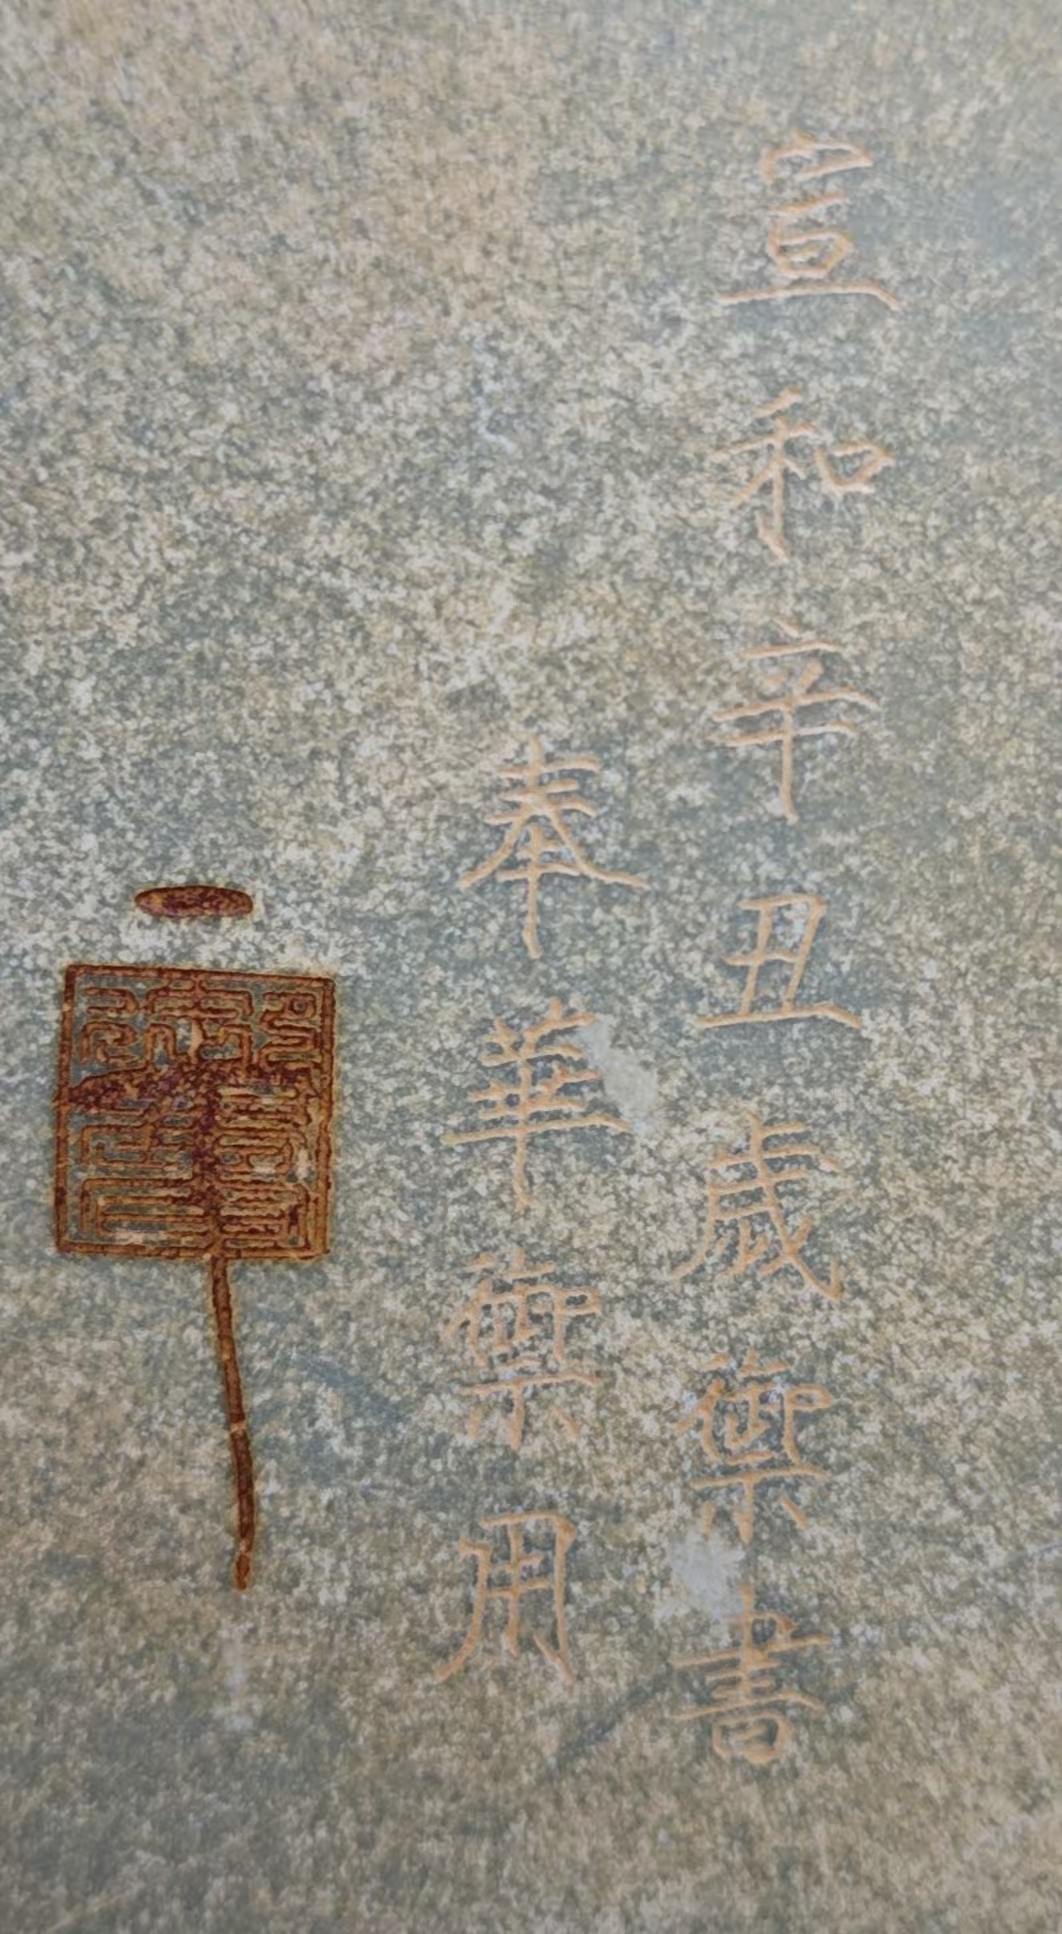 宣和辛丑歲御書
奉華御用